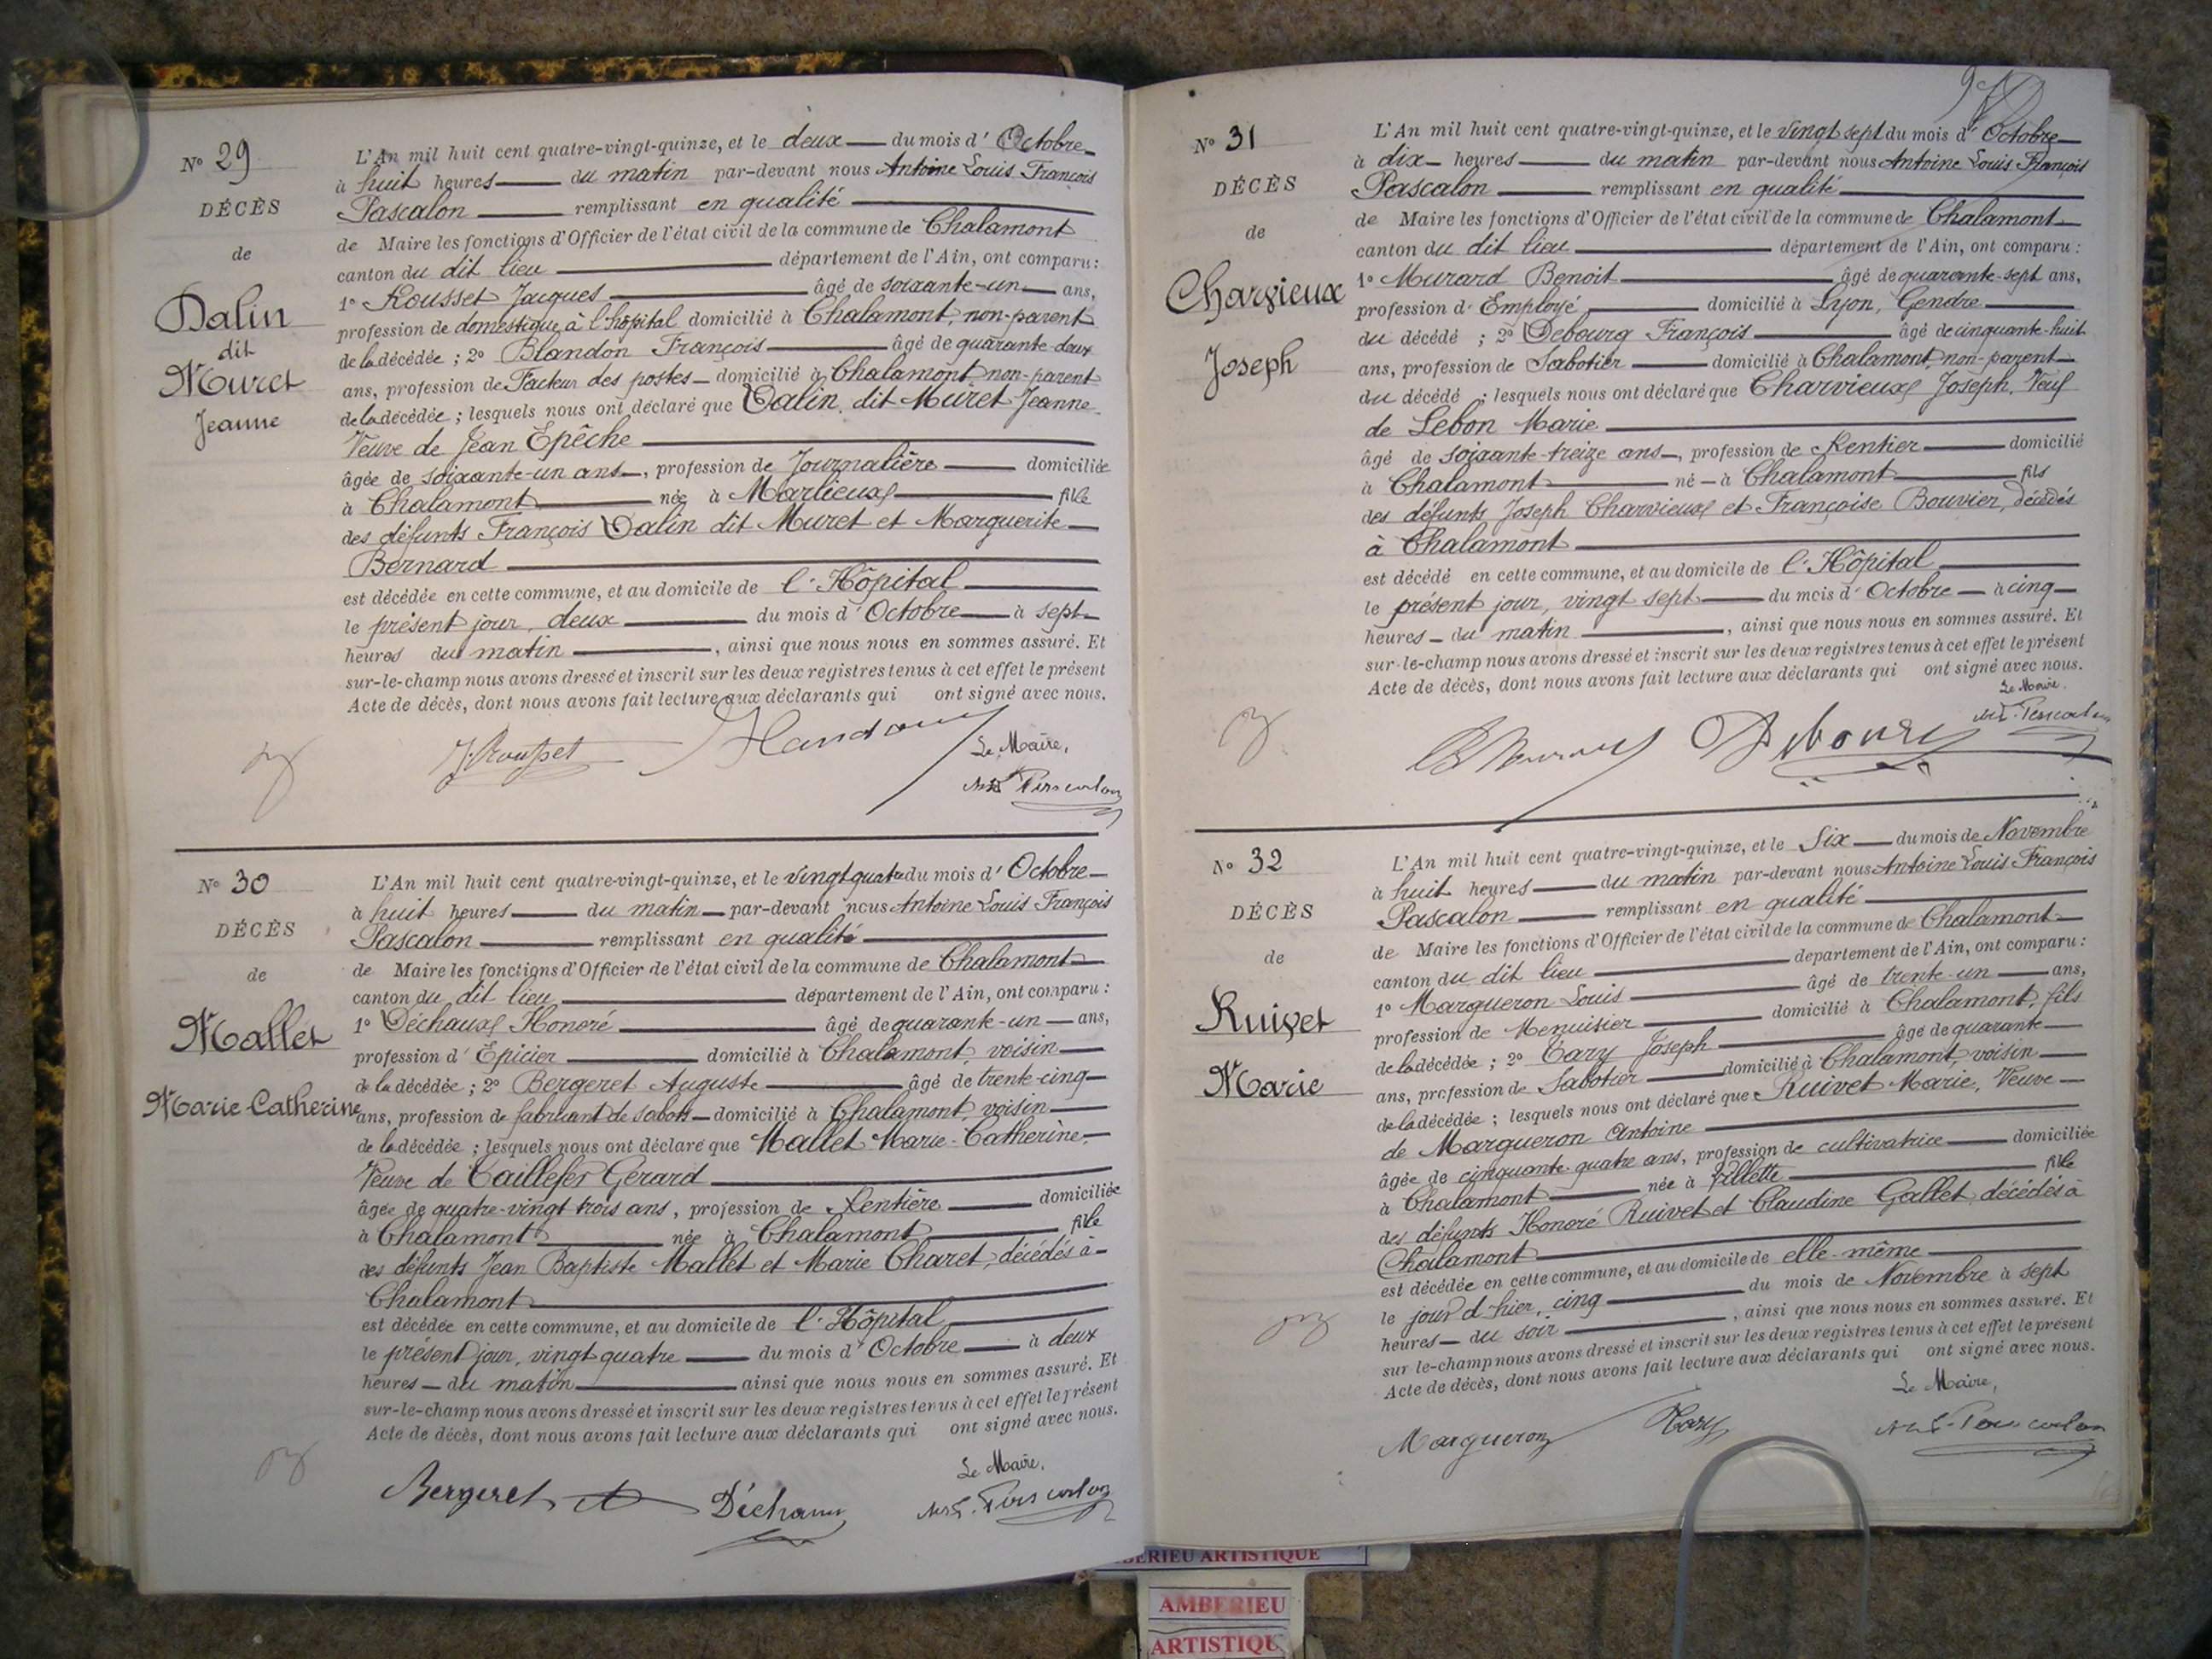 No 29
DÉCÈS
de
Dalin
dit
Muret
Jeanne
L'An mil huit cent quatre-vingt-quinze, et le deux du mois d' Octobre
à huit heures du matin par-devant nous Antoine Louis François
Pascalon remplissant en qualité
de Maire les fonctions d'Officier de l'état civil de la commune de Chalamont
canton du dit lieu département de l'Ain, ont comparu:
1o Rousset Jacques âgé de soixante-un ans,
profession de domestique à l'hôpital domicilié à Chalamont, non-parent
de la décédée; 2o Blandon François âgé de quarante-deux
ans, profession de Facteur des postes domicilié à Chalamont non-parent
de la décédée; lesquels nous ont déclaré que Dalin dit Muret Jeanne
Veuve de Jean Epêche
âgée de soixante-un ans, profession de Journalière domiciliée
à Chalamont née à Marlieux fille
des défunts François Dalin dit Muret et Marguerite
Bernard
est décédée en cette commune, et au domicile de l'Hôpital
le présent jour, deux du mois d' Octobre à sept
heures du matin, ainsi que nous nous en sommes assuré. Et
sur-le-champ nous avons dressé et inscrit sur les deux registres tenus à cet effet le présent
Acte de décès, dont nous avons fait lecture aux déclarants qui ont signé avec nous.
J. Rousset
Le Maire,
No 30
DÉCÈS
de
Mallet
Marie-Catherine
L'An mil huit cent quatre-vingt-quinze, et le vingt quatre du mois d' Octobre
à huit heures du matin par-devant nous Antoine Louis François
Pascalon remplissant en qualité
de Maire les fonctions d'Officier de l'état civil de la commune de Chalamont
canton du dit lieu département de l'Ain, ont comparu:
1o Déchaux Honoré âgé de quarante-un ans,
profession d' Epicier domicilié à Chalamont, voisin
de la décédée; 2o Bergeret Auguste âgé de trente-cinq
ans, profession de fabricant de sabots domicilié à Chalamont, voisin
de la décédée; lesquels nous ont déclaré que Mallet Marie-Catherine,
Veuve de Taillefer Gérard
âgée de quatre-vingt trois ans, profession de Rentière domiciliée
à Chalamont née à Chalamont fille
des défunts Jean Baptiste Mallet et Marie Charet, décédés à
Chalamont
est décédée en cette commune, et au domicile de l'Hôpital
le présent jour, vingt quatre du mois d' Octobre à deux
heures du matin ainsi que nous nous en sommes assuré. Et
sur-le-champ nous avons dressé et inscrit sur les deux registres tenus à cet effet le présent
Acte de décès, dont nous avons fait lecture aux déclarants qui ont signé avec nous.
Le Maire,
Bergeret Déchaux
No 31
DÉCÈS
de
Charvieux
Joseph
L'An mil huit cent quatre-vingt-quinze, et le vingt sept du mois d' Octobre
à dix heures du matin par-devant nous Antoine Louis François
Pascalon remplissant en qualité
de Maire les fonctions d'Officier de l'état civil de la commune de Chalamont
canton du dit lieu département de l'Ain, ont comparu:
1o Murard Benoit âgé de quarante-sept ans,
profession d' Employé domicilié à Lyon, Gendre
du décédé; 2o Debourg François âgé de cinquante-huit
ans, profession de Sabotier domicilié à Chalamont non-parent
du décédé; lesquels nous ont déclaré que Charvieux Joseph, Veuf
de Lebon Marie
âgé de soixante-treize ans, profession de Rentier domicilié
à Chalamont né à Chalamont fils
des défunts Joseph Charvieux et Françoise Bouvier, décédés
à Chalamont
est décédé en cette commune, et au domicile de l'Hôpital
le présent jour, vingt sept du mois d' Octobre à cinq
heures du matin, ainsi que nous nous en sommes assuré. Et
sur-le-champ nous avons dressé et inscrit sur les deux registres tenus à cet effet le présent
Acte de décès, dont nous avons fait lecture aux déclarants qui ont signé avec nous.
Le Maire.
B Murard Debourg
No 32
DÉCÈS
de
Ruivet
Marie
L'An mil huit cent quatre-vingt-quinze, et le Six du mois de Novembre
à huit heures du matin par-devant nous Antoine Louis François
Pascalon remplissant en qualité
de Maire les fonctions d'Officier de l'état civil de la commune de Chalamont
canton du dit lieu département de l'Ain, ont comparu:
1o Margueron Louis âgé de trente-un ans,
profession de Menuisier domicilié à Chalamont, fils
de la décédée; 2o Tary Joseph âgé de quarante
ans, profession de Sabotier domicilié à Chalamont, voisin
de la décédée; lesquels nous ont déclaré que Ruivet Marie, Veuve
de Margueron Antoine
âgée de cinquante-quatre ans, profession de cultivatrice domiciliée
à Chalamont née à Villette fille
des défunts Honoré Ruivet et Claudine Gallet décédés à
Chalamont
est décédée en cette commune, et au domicile de elle-même
le jour d'hier, cinq du mois de Novembre à sept
heures du soir, ainsi que nous nous en sommes assuré. Et
sur le-champ nous avons dressé et inscrit sur les deux registres tenus à cet effet le présent
Acte de décès, dont nous avons fait lecture aux déclarants qui ont signé avec nous.
Le Maire,
Margueron Tary
AMBERIEU
ARTISTIQUE